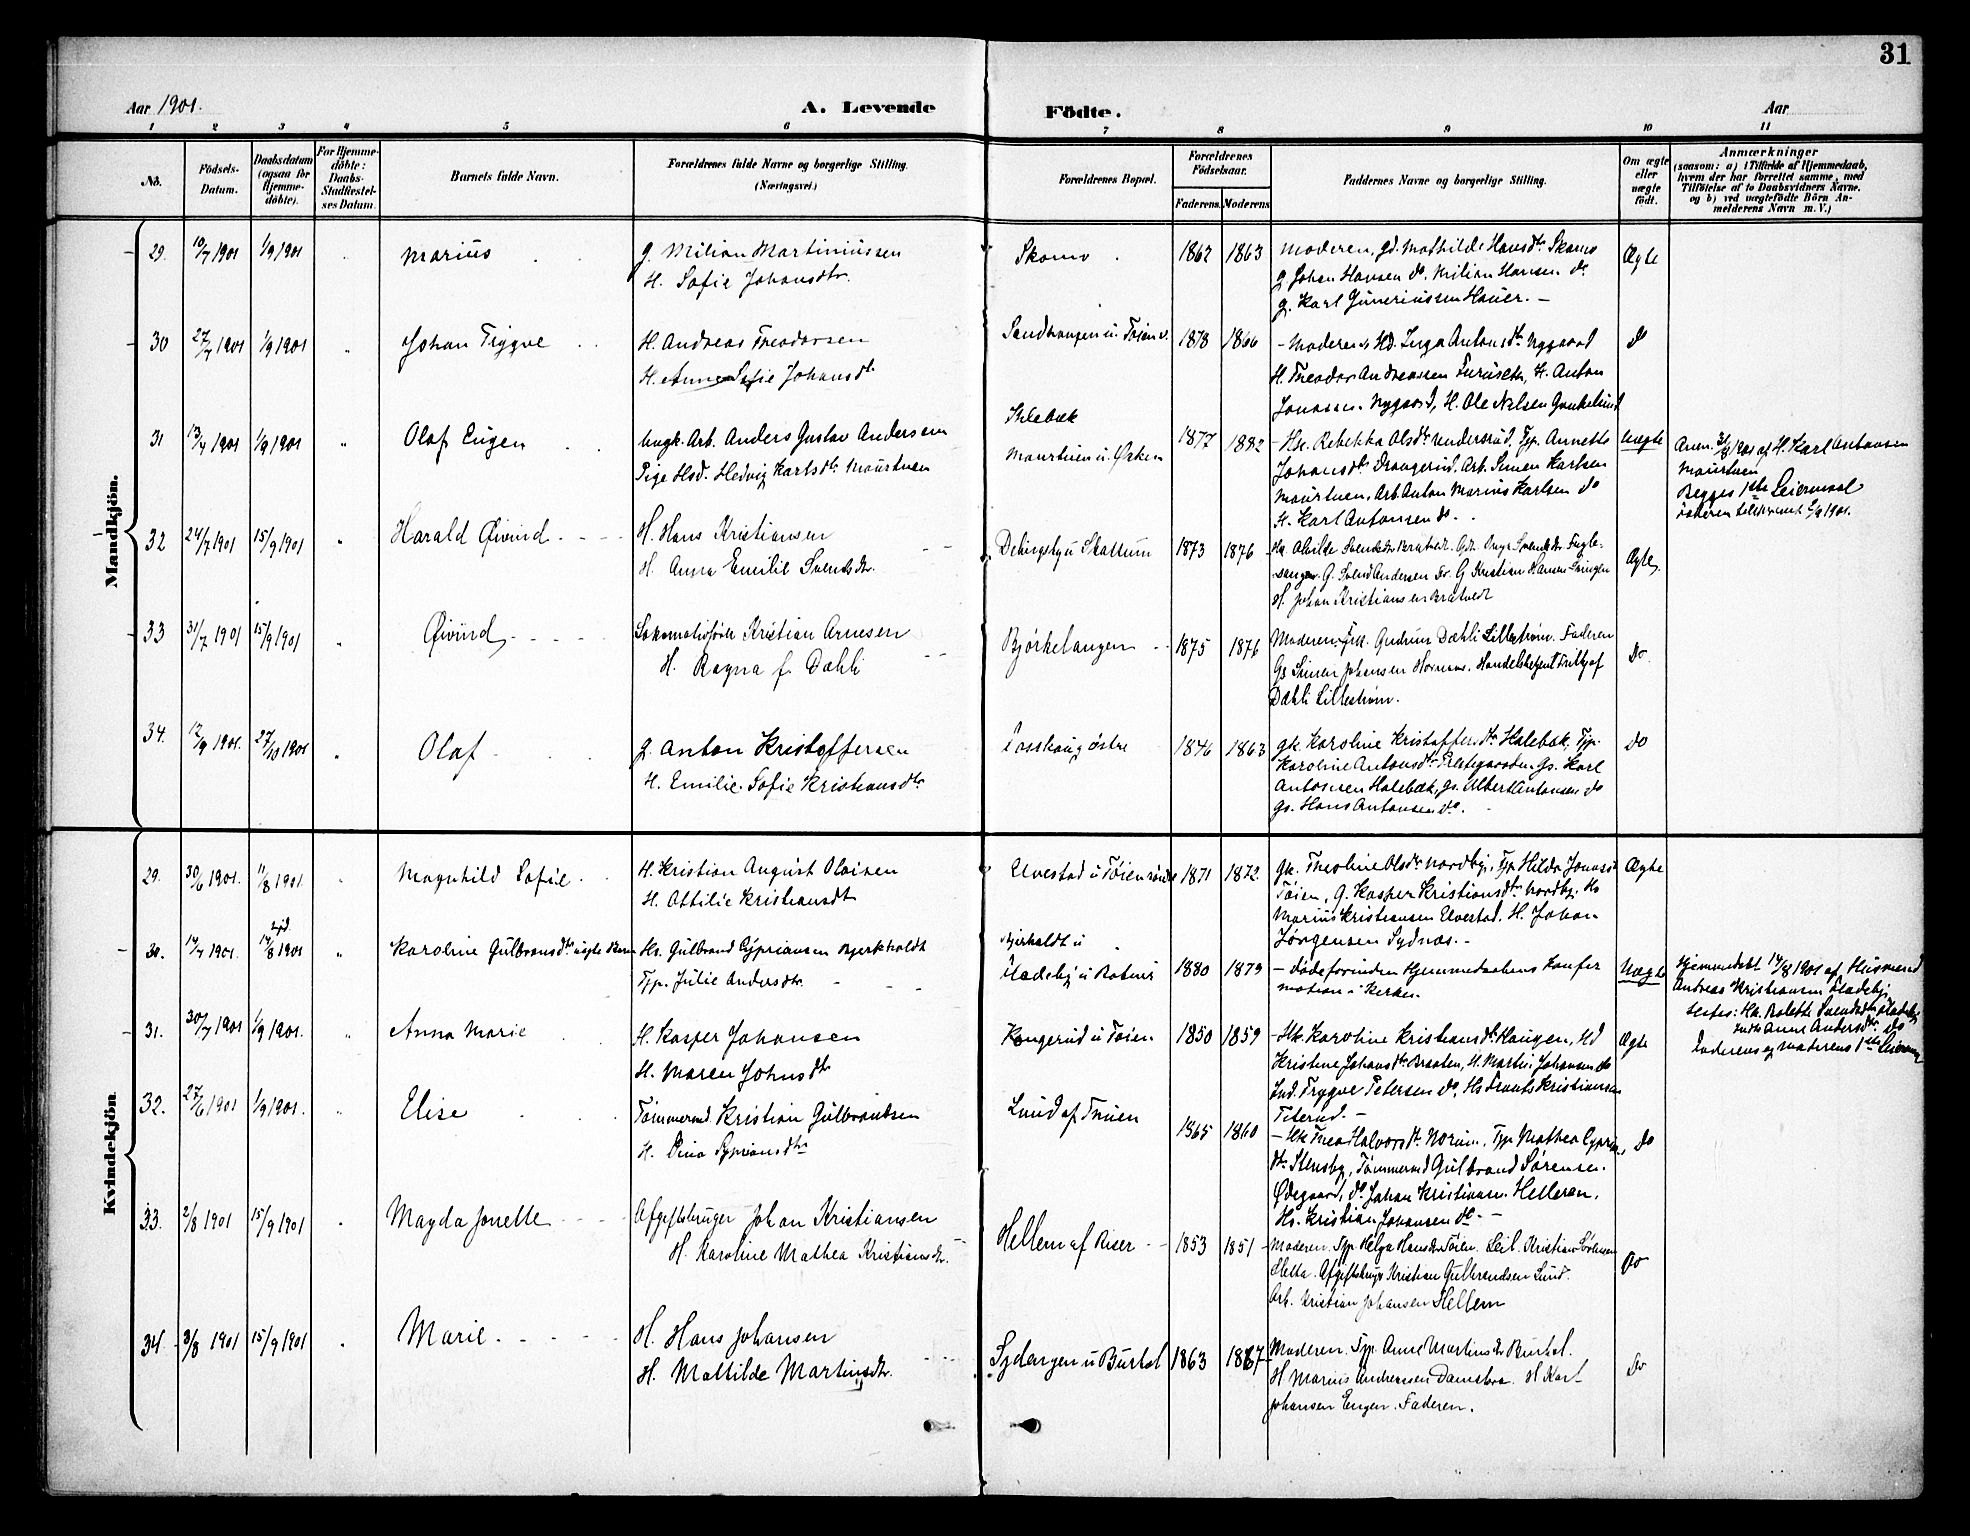 31
Aar 1901.
A. Levende
Födte.
Aar
1 2 3 4 5 6 7 8 9 10 11
No.
Födsels-Datum.
Daabsdatum (ogsaa for Hjemme-döbte).
For Hjemme-döbte: Daabs-Stadfæstel-ses Datum.
Barnets fulde Navn.
Forældrenes fulde Navne og borgerlige Stilling.
(Næringsvei.)
Forældrenes Bopæl.
Forældrenes Födselsaar.
Faderens. Moderens.
Faddernes Navne og borgerlige Stilling.
Om ægte eller uægte födt.
Anmærkninger
(saasom: a) i Tilfælde af Hjemmedaab, hvem der har forrettet samme, med Tilföielse af to Daabsvidners Navne, og b) ved uægtefödte Börn An-melderens Navn m. V.)
Mandkjön.
29. 10/7 1901 1/9 1901 Marius
G. Milian Martiniussen
H. Sofie Johansdtr.
Skomo 1862 1863
Moderen, Gd. Mathilde Hansdtr Skomo
G. Johan Hansen do. Milian Hansen do
G. Karl Guneriussen Hauer. —
Ægte
30 27/7 1901 1/9 1901 Johan Trygve
H. Andreas Theodorsen
H. Anne Sofie Johansdtr
Sandhaugen u. Toien v. 1878 1866
— Moderen, Hd. Inga Antonsdtr Nygaard
H. Theodor Andreassen Furuseth, H. Anton
Jonassen Nygaard, H. Ole Nelsen
do
31 13/7 1901 1/9 1901 Olaf Eugen
Ungk. Arb. Anders Gustav Andersen
Pige Hsd. Hedvig Karlsdtr Maurtuen
Maurtuen u. Ørken 1877 1882
Hk. Rebekka Olsdtr Undersrud, Tjp. Annette
Johansdtr Drangerud, Arb. Simen Karlsen
Maurtuen, Arb. Anton Marius Karlsen do
H. Karl Antonsen do.
Uægte
Anm. 31/8 1901 af H. Karl Antonsen
Maurtuen
Begges 1ste Leiermaal
32 24/7 1901 15/9 1901 Harald Øivind
H. Hans Kristiansen
H. Anna Emilie Svendsdtr.
Delingsby u Skattum 1873 1876
H. Johan Kristiansen Bratvedt
Ægte
33 31/7 1901 15/9 1901 Øivind
Lokomotivförer Kristian Arnesen
H. Ragna f. Dæhli
Bjørkelangen 1875 1876
Moderen, Frk. Gudrun Dæhli Lillestrøm. Faderen
Gs Simen Johansen Hornaas. Handelsbetjent Fritjof
Dæhli Lillestrøm.
Do
34. 12/9 1901. 27/10 1901 Olaf
G. Anton Kristoffersen
H. Emilie Sofie Kristiansdtr
Fosshaug østre 1846 1863
Gk. Karoline Kristoffersdtr Halebæk, Tjp.
Karoline Antonsdtr Prestegaarden, Gs. Karl
Antonsen Halebæk, Gs. Albert Antonsen do
Gs. Hans Antonsen do.
do
Kvindekjön.
29. 30/6 1901. 11/8 1901. Magnhild Sofie
H. Kristian August Olaisen
H. Ottilie Kristiansdtr
Elvestad u Toien søndre 1871 1872
Gk. Theoline Olsdtr Nordby, Tjp Hilda Jonasdtr
Toien, G. Kasper Kristiansdtr Nordby, Hs
Marius Kristiansen Elvestad, H. Johan
Jørgensen Sydnæs. —
Ægte
30. 14/7 1901. 14/8 1901 Karoline Gulbransdtr
Hs. Gulbrand Cyprianssen Bjerkholdt
Tjp. Julie Andersdtr.
Bjerkholdt u
Fladeby u Botner 1880 1879
— døde forinden Hjemmedaabens Konfir
mation i Kirken.
Uægte
Hjemmedøbt 14/8 1901 af Husmand
Andreas Kristiansen Fladeby
Faderens og Moderens 1ste Leiermaal
31. 30/7 1901 1/9 1901. Anna Marie
H. Kasper Johansen
H. Maren Johnsdtr
Kongerud u Toien 1850 1859
— Hk. Karoline Kristiansdtr Haugen, Hd
Kristine Johansdtr Braaten, H. Martin Johansen do
Ind. Trygve Petersen do, Hs Frants Kristiansen
Titerud. —
Ægte
32. 27/6 1901 1/9 1901. Elise
Tømmermd Kristian Gulbrandsen
H. Dina Cypriansdtr
Lund af Truen 1865 1860
— Hk Thea Halvorsdtr Norum, Tjp Mathea Cyprians
dtr Stensby, Tømmermd Gulbrand Sørensen
Ødegaard, do Johan Kristiansen Helleren,
Hs. Kristian Johansen do. —
Do
33. 2/8 1901 15/9 1901 Magda Jonette
Afgiftsbruger Johan Kristiansen
H. Karoline Mathea Kristiansdtr.
Hellern af Riser 1853 1851
Moderen. Tjp Helga Hansdtr Toien. Kristian Sørensen
Sletta. Afgiftsbruger Kristian Gulbrandsen Lund.
Arb. Kristian Johansen Hellern
Do
34. 3/8 1901 15/9 1901 Marie
H. Hans Johansen
H. Mathilde Martinsdtr.
Sydengen u Burtol 1863 1867
Moderen. Tjp. Anne Martinsdtr Burtol.
H Marius Andreassen Damsbro. H Karl
Johansen Engen. Faderen.
Do